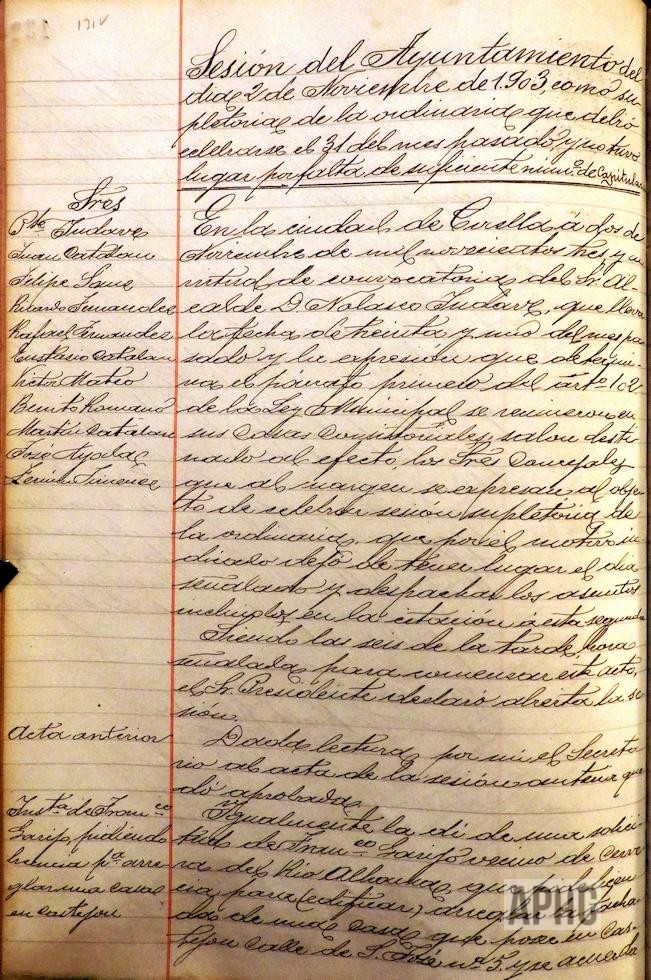 131v
Sesión del Ayuntamiento del
dia 2 de Noviembre de 1.903, como su
pletoria de la ordinaria que debió
celebrarse el 31 del mes pasado y no tuvo
lugar por falta de suficiente núm.º de Capitulares
Sres
Pte Tudave
Juan Catalan
Felipe Sanz
Ricardo Fernandez
Rafael Fernandez
Eustasio Catalan
Victor Mateo
Benito Romano
Martin Catalan
José Ayala
Fermin Jimenez
En la ciudad de Corella á dos de
Noviembre de mil novecientos tres, y en
virtud de convocatoria del Sr. Al-
calde D. Nolasco Tudave, que lleva
la fecha de treinta y uno del mes pa
sado y la expresion que determi-
na el párrafo primero del artº 102
de la Ley Municipal se reunieron en
sus Casas Consistoriales, salon desti
nado al efecto, los Sres Concejales
que al margen se expresan al obje
to de celebrar sesion supletoria de
la ordinaria, que por el motivo in
dicado dejó de tener lugar el dia
señalado y despachar los asuntos
incluidos en la citación á esta segunda
Siendo las seis de la tarde, hora
señalada para comenzar este acto,
el Sr. Presidente declaró abierta la se
sión.
Acta anterior
Dada lectura por mi el Secreta
rio al acta de la sesión anterior que
dó aprobada.
Insta de Franco
Garijo pidiendo
licencia pª arre
glar una casa
en Castejon
Igualmente la di de una solici
tud de Franco Garijo vecino de Cerve
ra del Rio Alhama, que pide licen
cia para (edificar) arreglar la facha
da de una casa que posee en Cas-
tejon calle de S. José nº 5, y se acuerda
APHC